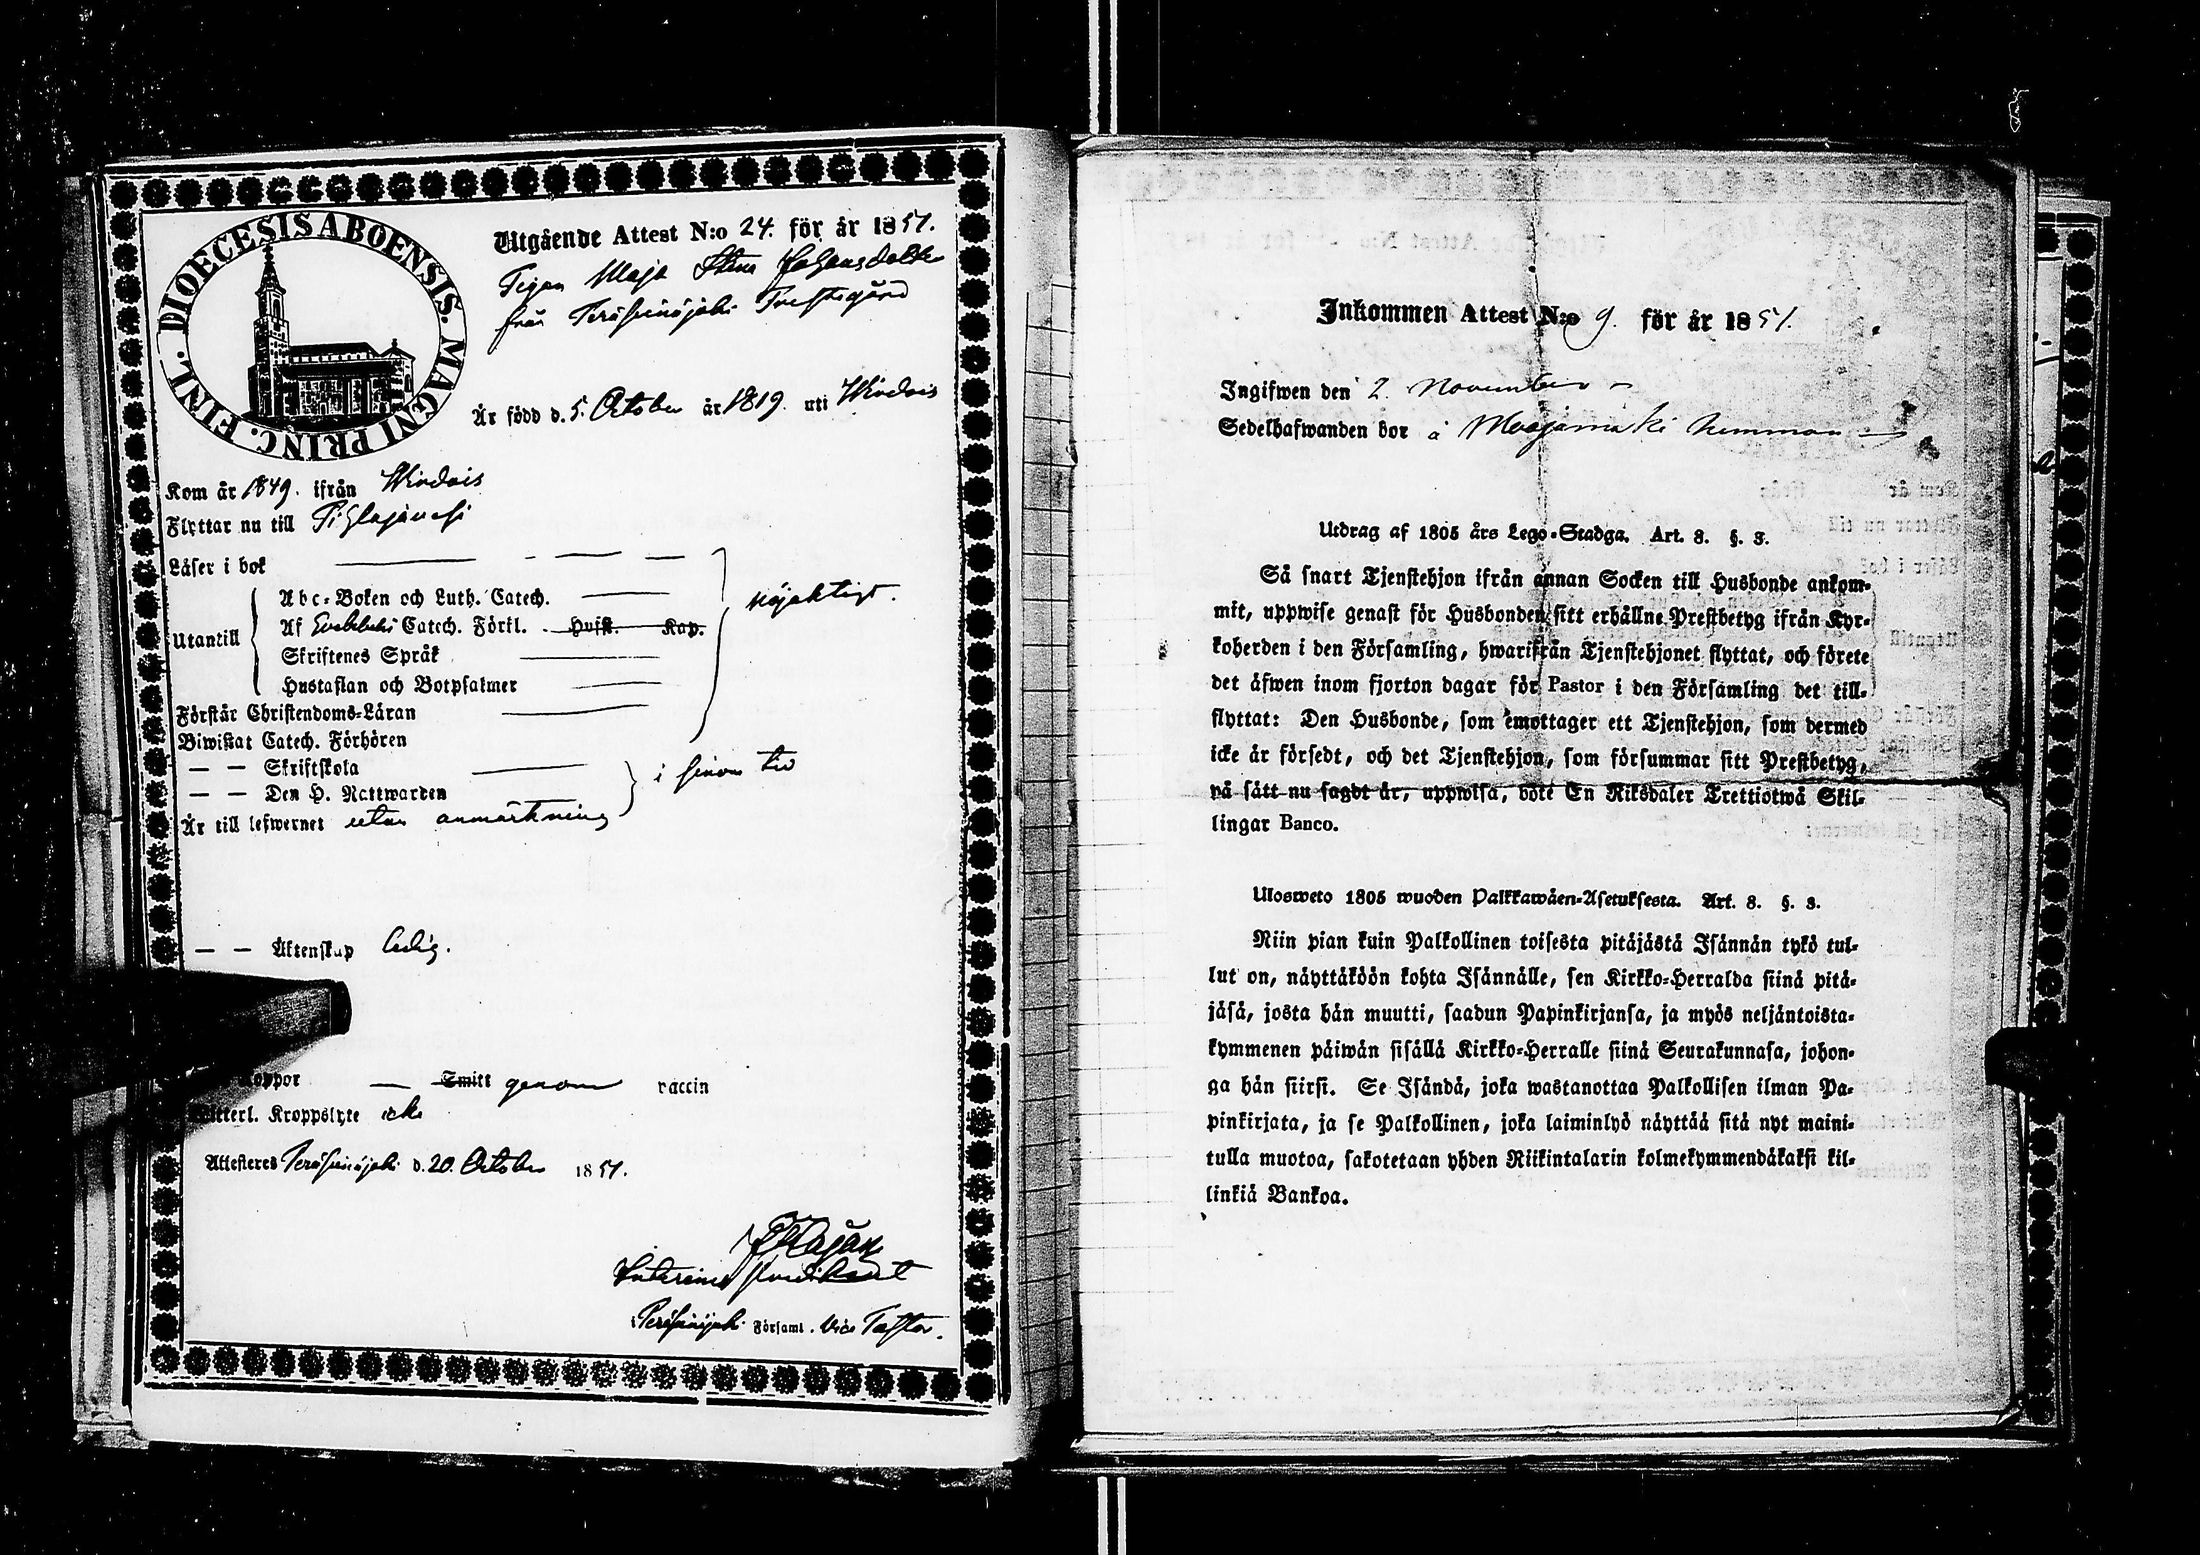 DIOECESIS ABOENSIS. MAGNI PRINC. FINL.
Utgående Attest N:o 24. för år 1851.
Pigan Maja Stina Johansdotter
från Peräseinäjoki Prestgård
Är född d. 5. October år 1819. uti Wirdois
Kom år 1849. ifrån Wirdois
Flyttar nu till Pihlajavesi
Läser i bok
Abc-Boken och Luth. Catech.
nöjaktigt.
Utantill
Af Svebelii Catech. Förkl. Husk. Kap.
Skriftenes Språk
Hustaflan och Botpsalmer
Förstår Christendoms-Läran
Biwistat Catech. Förhören
— — Skriftskola
i sinom tid
— — Den H. Nattwarden
Är till lefwernet utan anmärkning
— — Äktenskap ledig.
koppor — Smitt genom vaccin
Witterl. Kroppslyte icke
Attesteres Peräseinäjoki d. 20. October 1851.
Interims Predikant
i Peräseinäjoki Församl. Vice Pastor.
Inkommen Attest N:o 9. för år 1851.
Ingifwen den 2. November
Sedelhafwanden bor å hemman
Utdrag af 1805 års Lego-Stadga. Art. 8. §. 3.
Så snart Tjenstehjon ifrån annan Socken till Husbonde ankom-
mit, uppwise genast för Husbonden sitt erhållne Prestbetyg ifrån Kyr-
koherden i den Församling, hwarifrån Tjenstehjonet flyttat, och förete
det äfwen inom fjorton dagar för Pastor i den Församling det till-
flyttat: Den Husbonde, som emottager ett Tjenstehjon, som dermed
icke är försedt, och det Tjenstehjon, som försummar sitt Prestbetyg,
på sätt nu sagdt är, uppwisa, böte En Riksdaler Trettiotwå Skil-
lingar Banco.
Ulosweto 1805 wuoden Palkkawäen-Asetuksesta. Art. 8. §. 3.
Niin pian kuin Palkollinen toisesta pitäjästä Isännän tykö tul-
lut on, näyttäköön kohta Isännälle, sen Kirkko-Herralda siinä pitä-
jäsä, josta hän muutti, saadun Papinkirjansa, ja myös neljäntoista-
kymmenen päiwän sisällä Kirkko-Herralle siinä Seurakunnasa, johon-
ga hän siirsi. Se Isändä, joka wastanottaa Palkollisen ilman Pa-
pinkirjata, ja se Palkollinen, joka laiminlyö näyttää sitä nyt maini-
tulla muotoa, sakotetaan yhden Riikintalarin kolmekymmendäkaksi kil-
linkiä Bankoa.